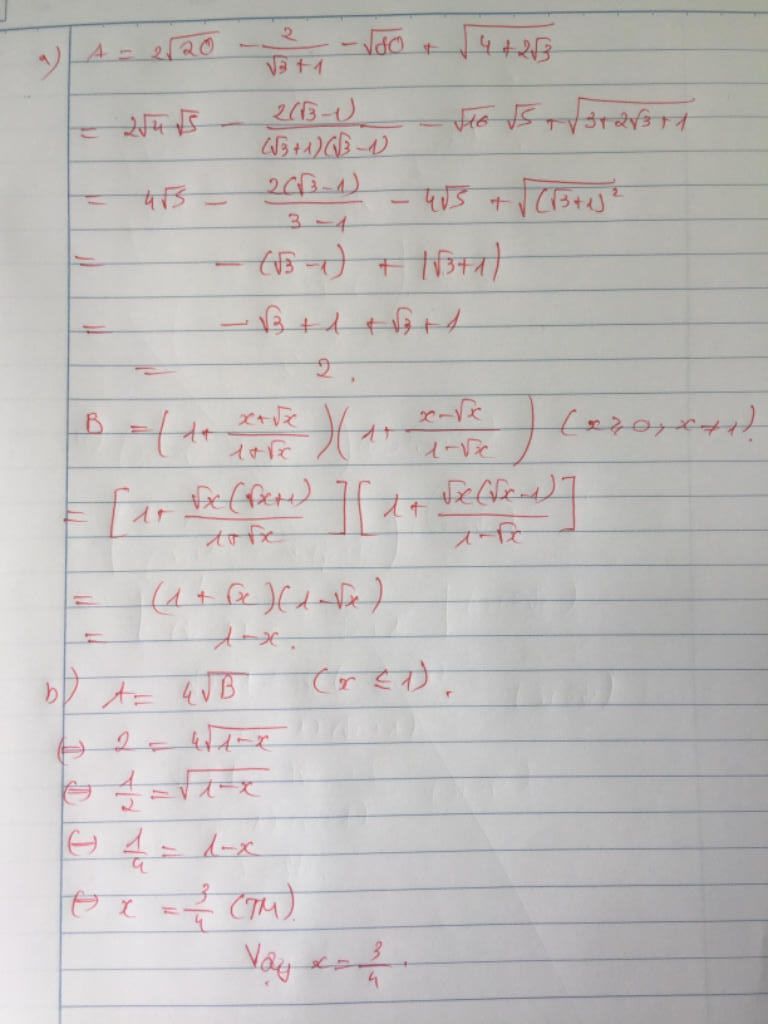 a) A = 2√20 - 2/(√3+1) - √80 + √(4+2√3)
= 2√4 √5 - 2(√3-1)/((√3+1)(√3-1)) - √16 √5 + √(3+2√3+1)
= 4√5 - 2(√3-1)/(3-1) - 4√5 + √((√3+1)²)
= -(√3-1) + |√3+1|
= -√3+1+√3+1
= 2.
B = (1 + (x+√x)/(1+√x))(1 + (x-√x)/(1-√x)) (x≥0, x≠1).
= [1 + √x(√x+1)/(1+√x)][1 + √x(√x-1)/(1-√x)]
= (1+√x)(1-√x)
= 1-x.
b) A = 4√B (x ≤ 1).
⇔ 2 = 4√(1-x)
⇔ 1/2 = √(1-x)
⇔ 1/4 = 1-x
⇔ x = 3/4 (TM).
Vậy x = 3/4.